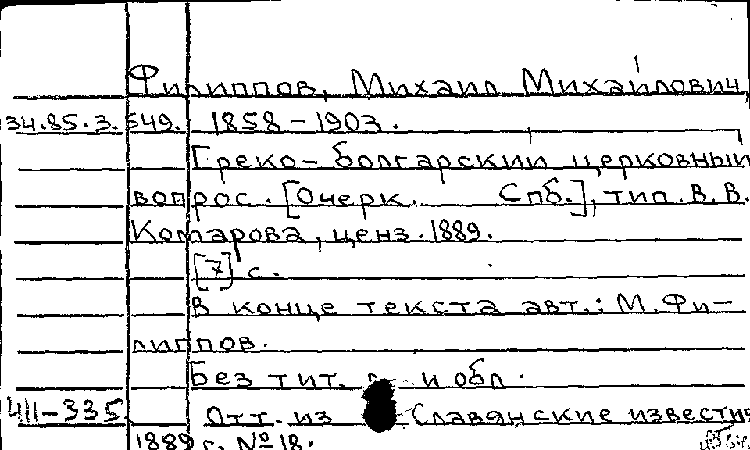 Филиппов, Михаил Михайлович,
34.85.3.549. 1858-1903.
Греко-болгарский церковный
вопрос. [Очерк. Спб.], тип. В.В.
Комарова, ценз. 1889.
[7] с.
В конце текста авт.: М. Фи-
липпов.
Без тит. л. и обл.
411-335 Отт. из Славянские известия
1889 г. № 18.